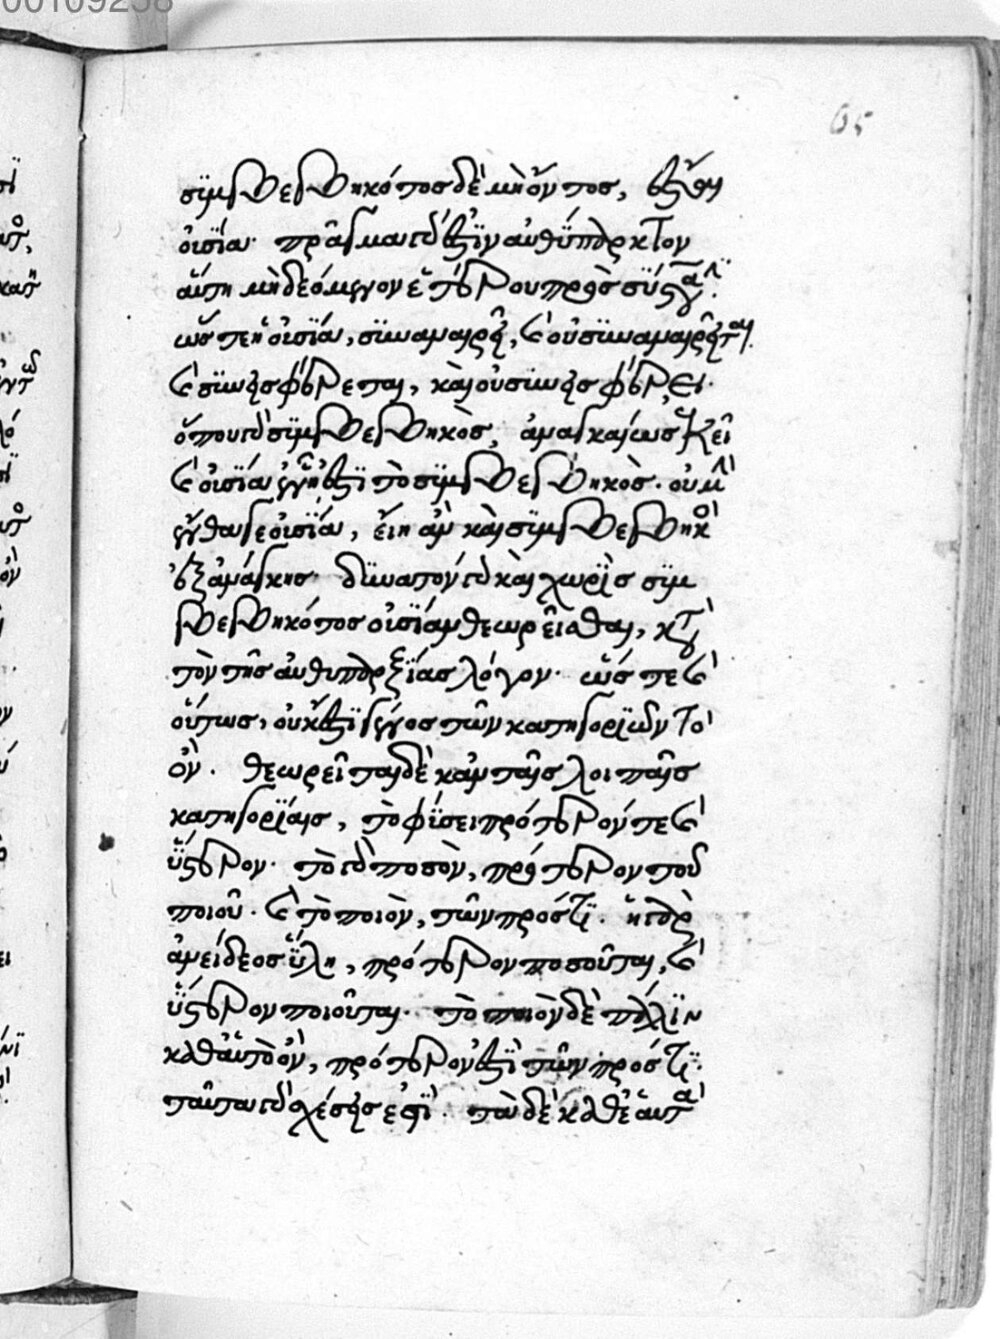 00109258
65
συμβεβηκότος δὲ μὴ ὄντος, ἔξεστι
οὐσία· πρᾶγμα γάρ ἐστιν αὐθύπαρκτον
αὕτη μὴ δεόμενον ἑτέρου πρὸς σύστασιν·
ὥσπερ ἡ οὐσία, συναναιρεῖ, καὶ οὐ συναναιρεῖται·
καὶ συνεισφέρεται, καὶ οὐ συνεισφέρει·
ὅπου γὰρ συμβεβηκὸς, ἀνάγκη πάντως ἐκεῖ
καὶ οὐσίαν ἐν ᾗ ἐστι τὸ συμβεβηκὸς· οὐ μὴν
ἔνθα γε οὐσία, εἴη ἂν καὶ συμβεβηκὸς
ἐξ ἀνάγκης· δυνατὸν γὰρ καὶ χωρὶς συμ
βεβηκότος οὐσίαν θεωρεῖσθαι, κατὰ
τὸν τῆς αὐθυπαρξίας λόγον· ὥσπερ καὶ
οὕτως, οὐκ ἔστι γένος τῶν κατηγοριῶν τὸ
ὄν· θεωρεῖται δὲ κἂν ταῖς λοιπαῖς
κατηγορίαις, τὸ φύσει πρότερόν τε καὶ
ὕστερον· τὸ γὰρ ποσὸν, πρότερον τοῦ
ποιοῦ· καὶ τὸ ποιὸν, τῶν πρός τι· ἡ γὰρ
ἀνείδεος ὕλη, πρότερον ποσοῦται, καὶ
ὕστερον ποιοῦται· τὸ ποιὸν δὲ πάλιν
καθ' αὑτὸ ὂν, πρότερόν ἐστι τῶν πρός τι·
ταῦτα γὰρ σχέσεις εἰσὶ· τὰ δὲ καθ' ἑαυτὰ